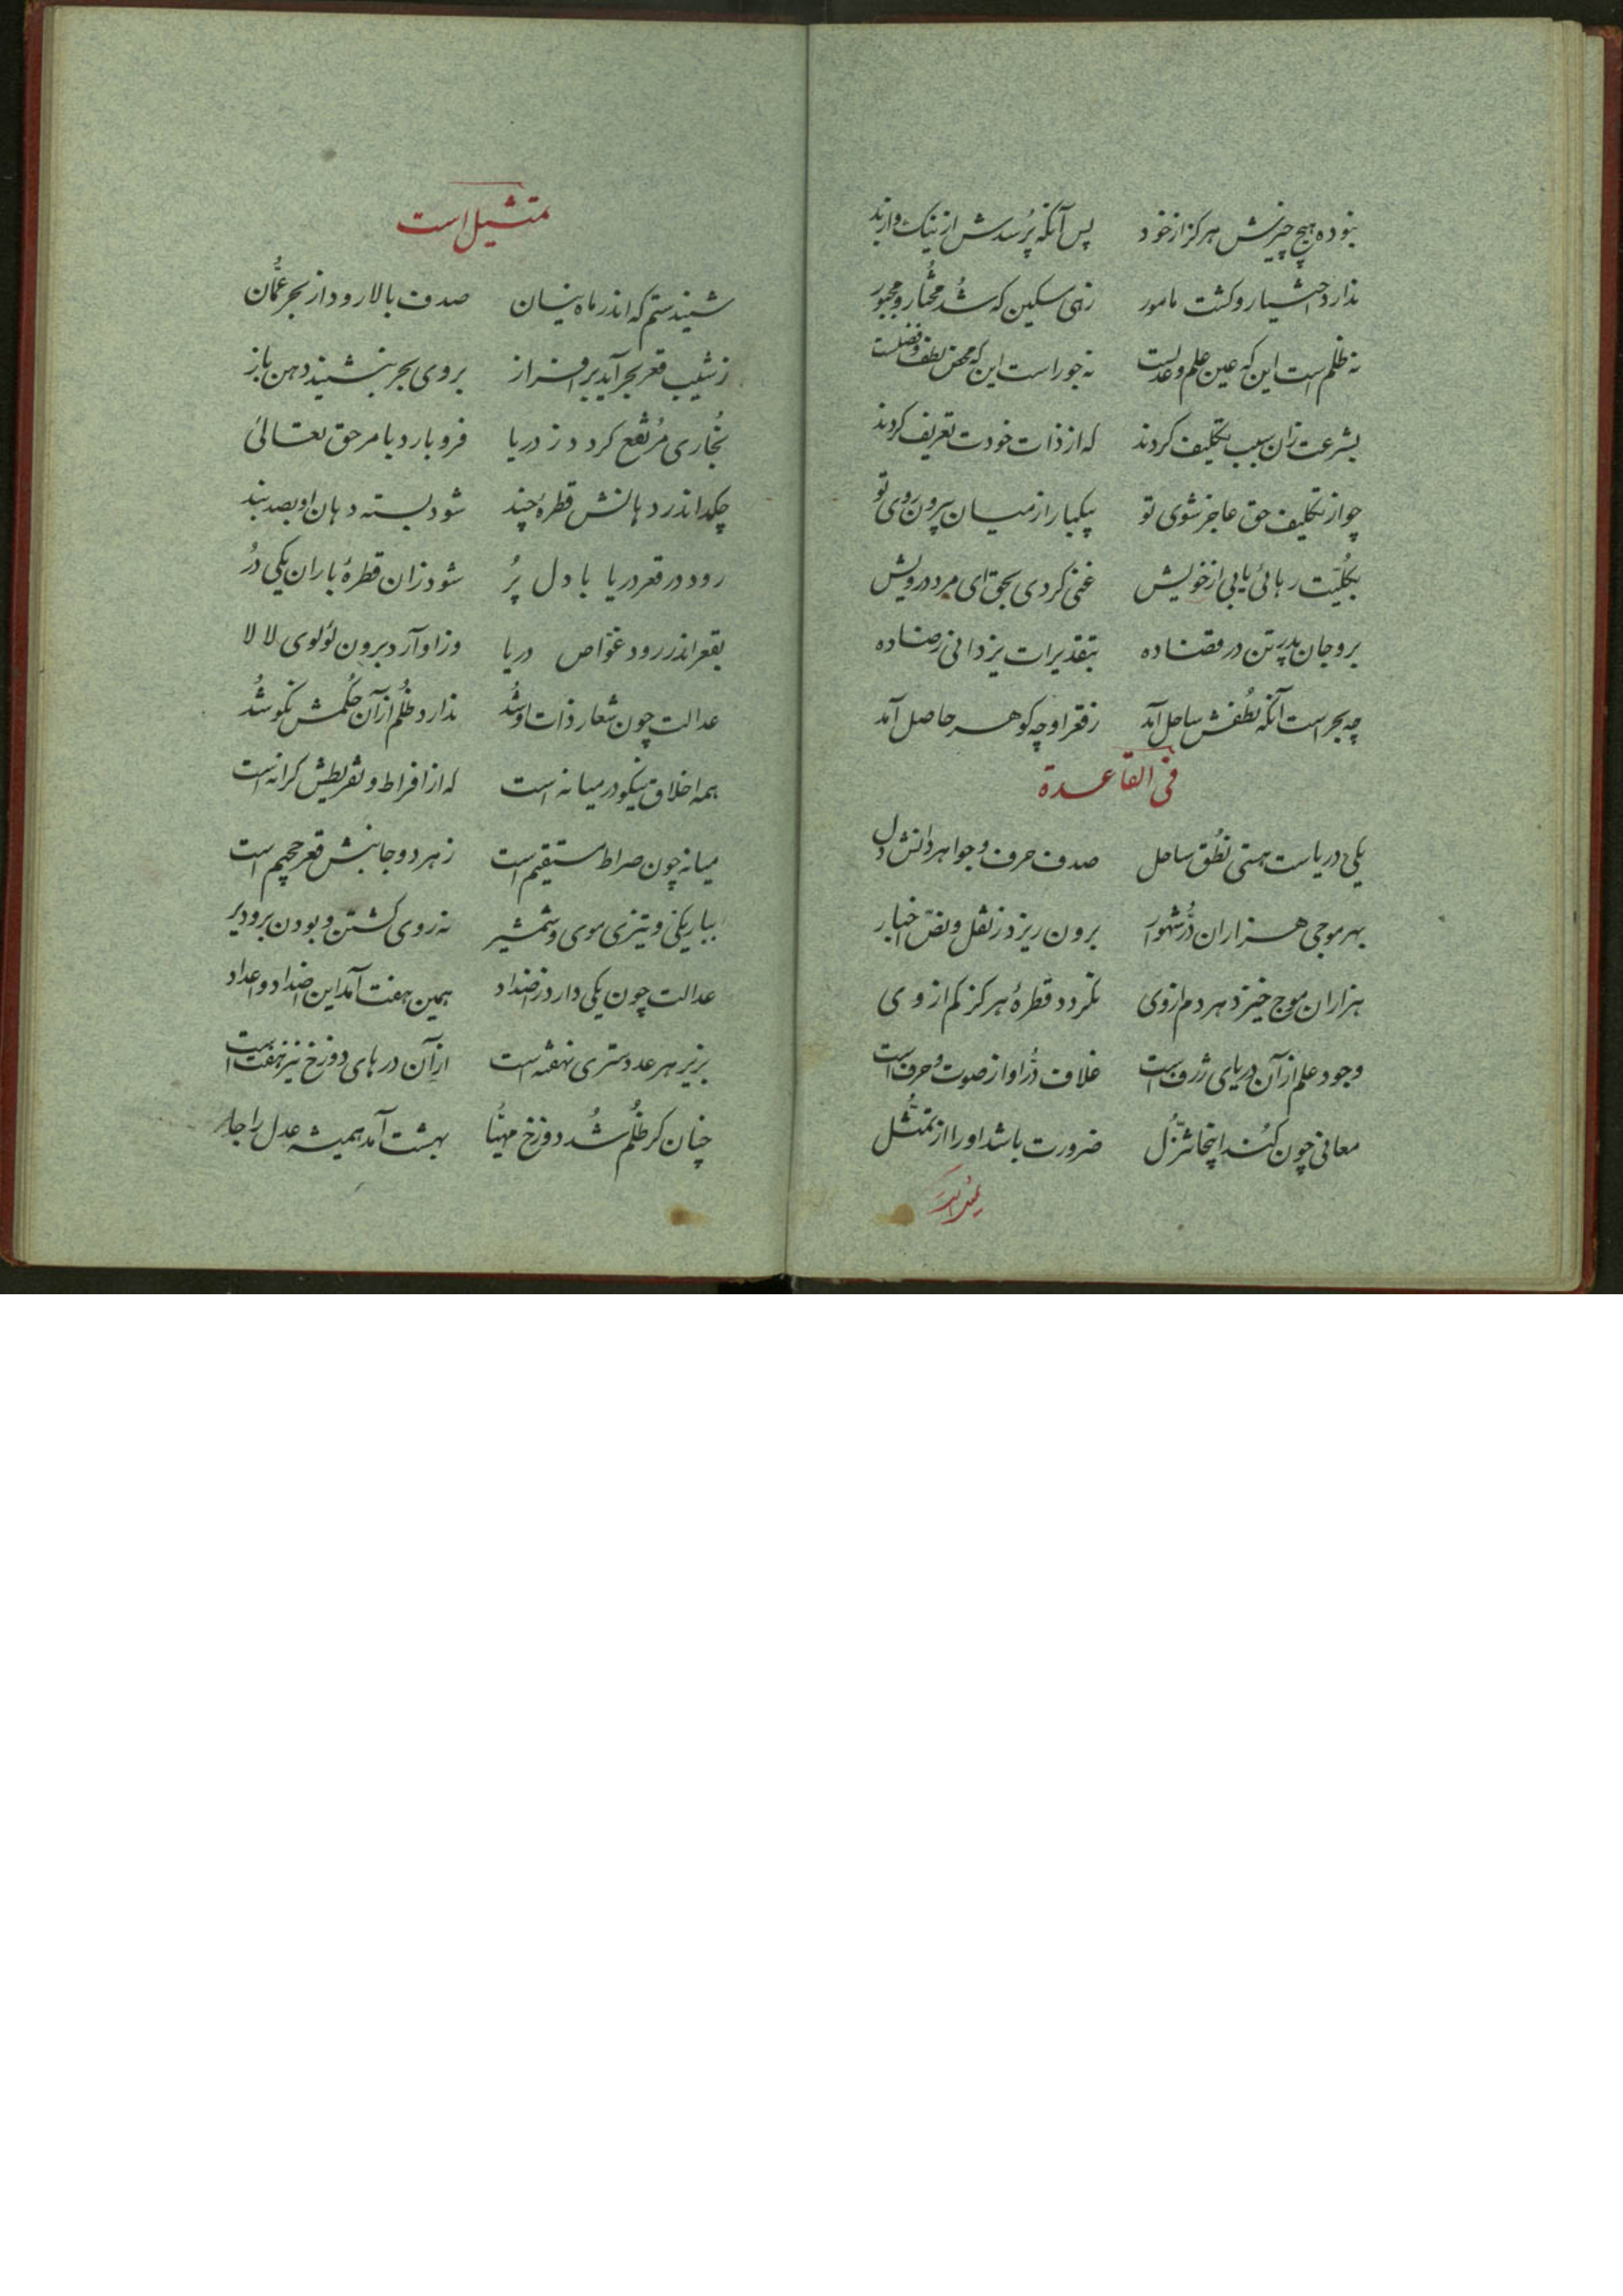 نبوده هیچ چیزش هرکز از خود پس آنکه پُرسدش از نیک و از بد
ندارد اختیار و کشت مامور زهی مسکین که شُد مختُار و مجبور
نه ظلم است این که عین علم و عدلست نه جور است این که محض لطف و فضلست
بشرعت زان سبب تکلیف کردند که از ذات خودت تعریف کردند
چو از تکلیف حق عاجز شوی تو بیکبار از میان بیرون روی تو
بکلیّت رهائی یابی از خویش غنی کردی بحق ای مرد درویش
برو جان پدر تن در قضا ده بتقدیرات یزدانی رضا ده
چه بحر است آنکه نُطقش ساحل آمد ز قعر او چه کوهر حاصل آمد
فی القاعدة
یکی دریاست هستی نُطق ساحل صدف حرف و جواهر دانش دل
بهر موجی هزاران دُرّ شهوار برون ریزد ز نقل و نصّ اخبار
هزاران موج خیزد هر دم از وی نکردد قطرهٔ هرکز کم از وی
وجود علم از آن دریای ژرف است غلاف دُرّ او از صوت و حرف است
معانی چون کُند اینجا تنزّل ضرورت باشد او را از تمثُّل
تمثیل است
شنیدستم که اندر ماه نیسان صدف بالا رود از بحر عُمّان
ز شیب قعر بحر آید بر افراز بروی بحر بنشیند دهن باز
بُخاری مُرتفع کردد ز دریا فرو بارد بامر حق تعالیٰ
چکد اندر دهانش قطرهٔ چند شود بسته دهان او بصد بند
رود در قعر دریا با دل پُر شود زان قطرهٔ باران یکی دُر
بقعر اندر رود غوّاص دریا وز او آرد برون لؤلوی لالا
عدالت چون شعار ذات او شُد ندارد ظُلم از آن حُکمش نکو شُد
همه اخلاق نیکو در میانه است که از افراط و تفریطش کرانه است
میانه چون صراط مستقیم است ز هر دو جانبش قعر جحیم است
بباریکی و تیزی موی و شمشیر نه روی کشتن و بودن برو دیر
عدالت چون یکی دارد ز اضداد همین هفت آمد این اضداد و اعداد
بزیر هر عدد سّری نهفته است از آن درهای دوزخ نیز هفت است
چنان کز ظُلم شُد دوزخ مهیّا بهشت آمد همیشه عدل را جا